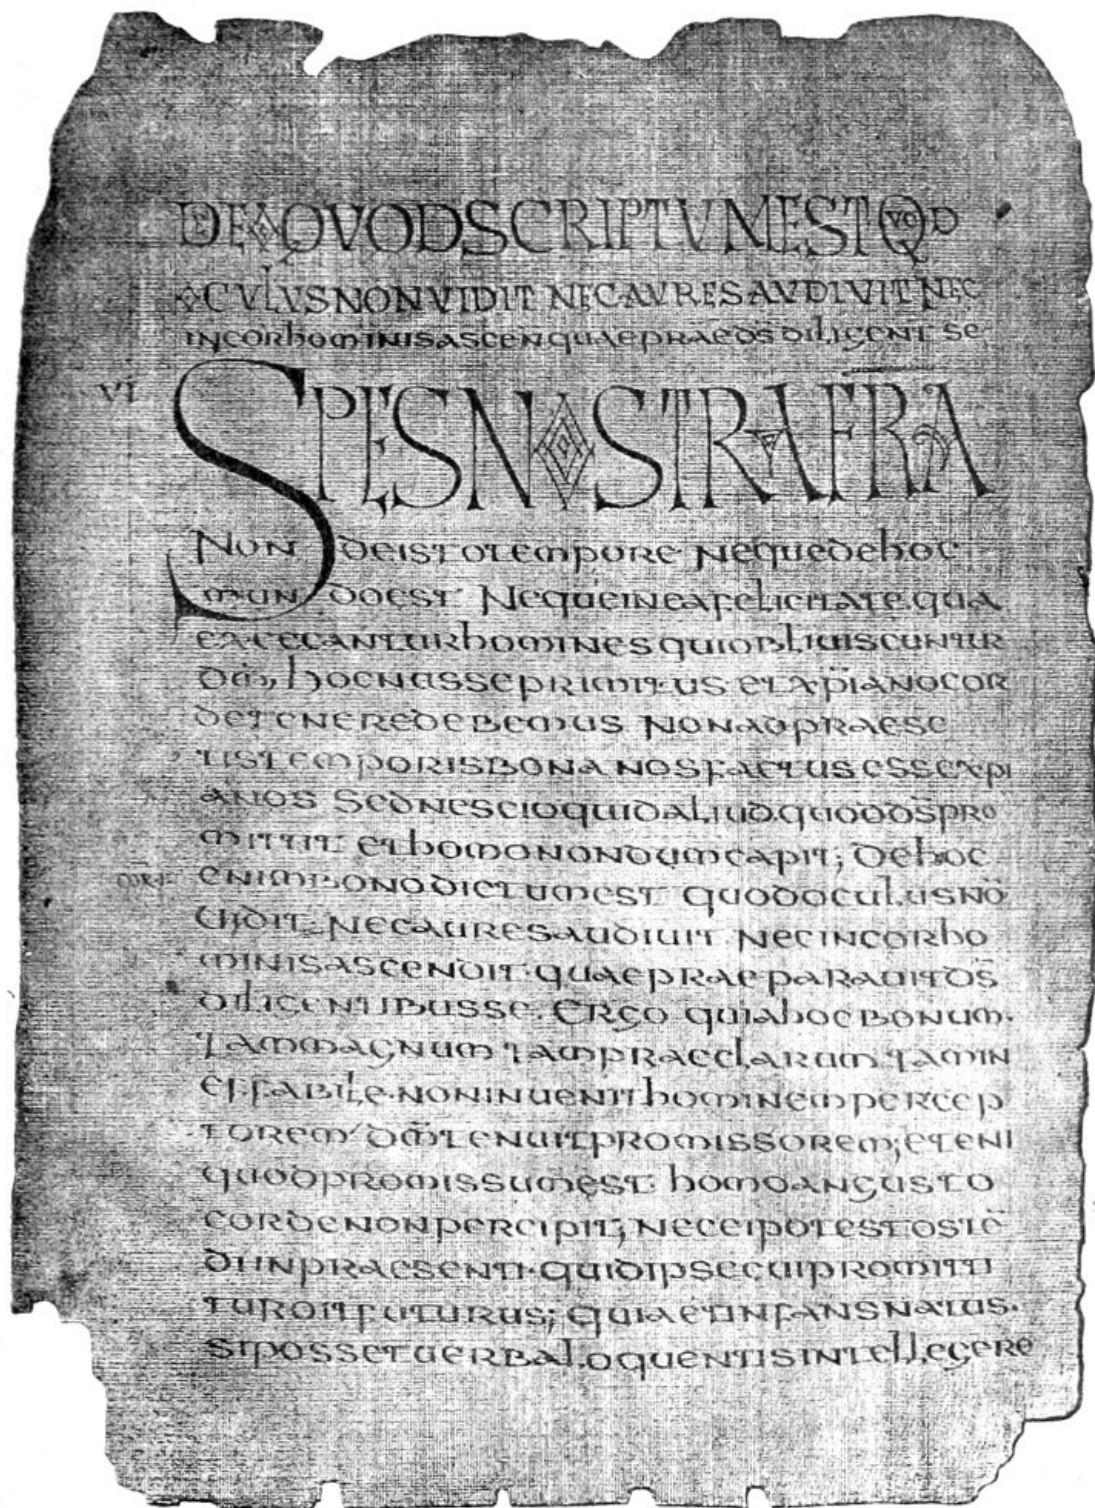 DE EO QVOD SCRIPTVM EST QVOD
OCVLVS NON VIDIT NEC AVRES AVDIVIT NEC
IN COR hOMINIS ASCEN QUAE PRAE DS DILIGENT SE
VI SPES NOSTRA FRA
NON DE ISTO TEMPORE NEQUE DE hOC
MUNDO EST NEQUE IN EA FELICITATE QUA
EXCECANTUR hOMINES QUI OBLIUISCUNTUR
DM, hOC NUSSE PRIMITUS ET XPIANO COR
DE TENERE DEBEMUS NON AD PRAESE
TIS TEMPORIS BONA NOS FACTUS ESSE XPI
ANOS SED NESCIO QUID ALIUD QUOD DS PRO
MITTIT ET hOMO NONDUM CAPIT; DE hOC
ENIM BONO DICTUM EST QUOD OCULUS NO
UIDIT NEC AURES AUDIUIT NEC IN COR hO
MINIS ASCENDIT QUAE PRAEPARAUIT DS
DILIGENTIBUS SE. ERGO QUIA hOC BONUM.
TAM MAGNUM TAM PRAECLARUM TAM IN
EFFABILE NON INUENIT hOMINEM PERCEP
TOREM DM TENUIT PROMISSOREM; ETENI
QUOD PROMISSUM EST hOMO ANGUSTO
CORDE NON PERCIPIT; NEC EI POTEST OSTE
DI IN PRAESENTI QUID IPSE CUI PROMITTI
TUR ERIT FUTURUS; QUIA ET INFANS NATUS.
SI POSSET UERBA LOQUENTIS INTELLEGERE